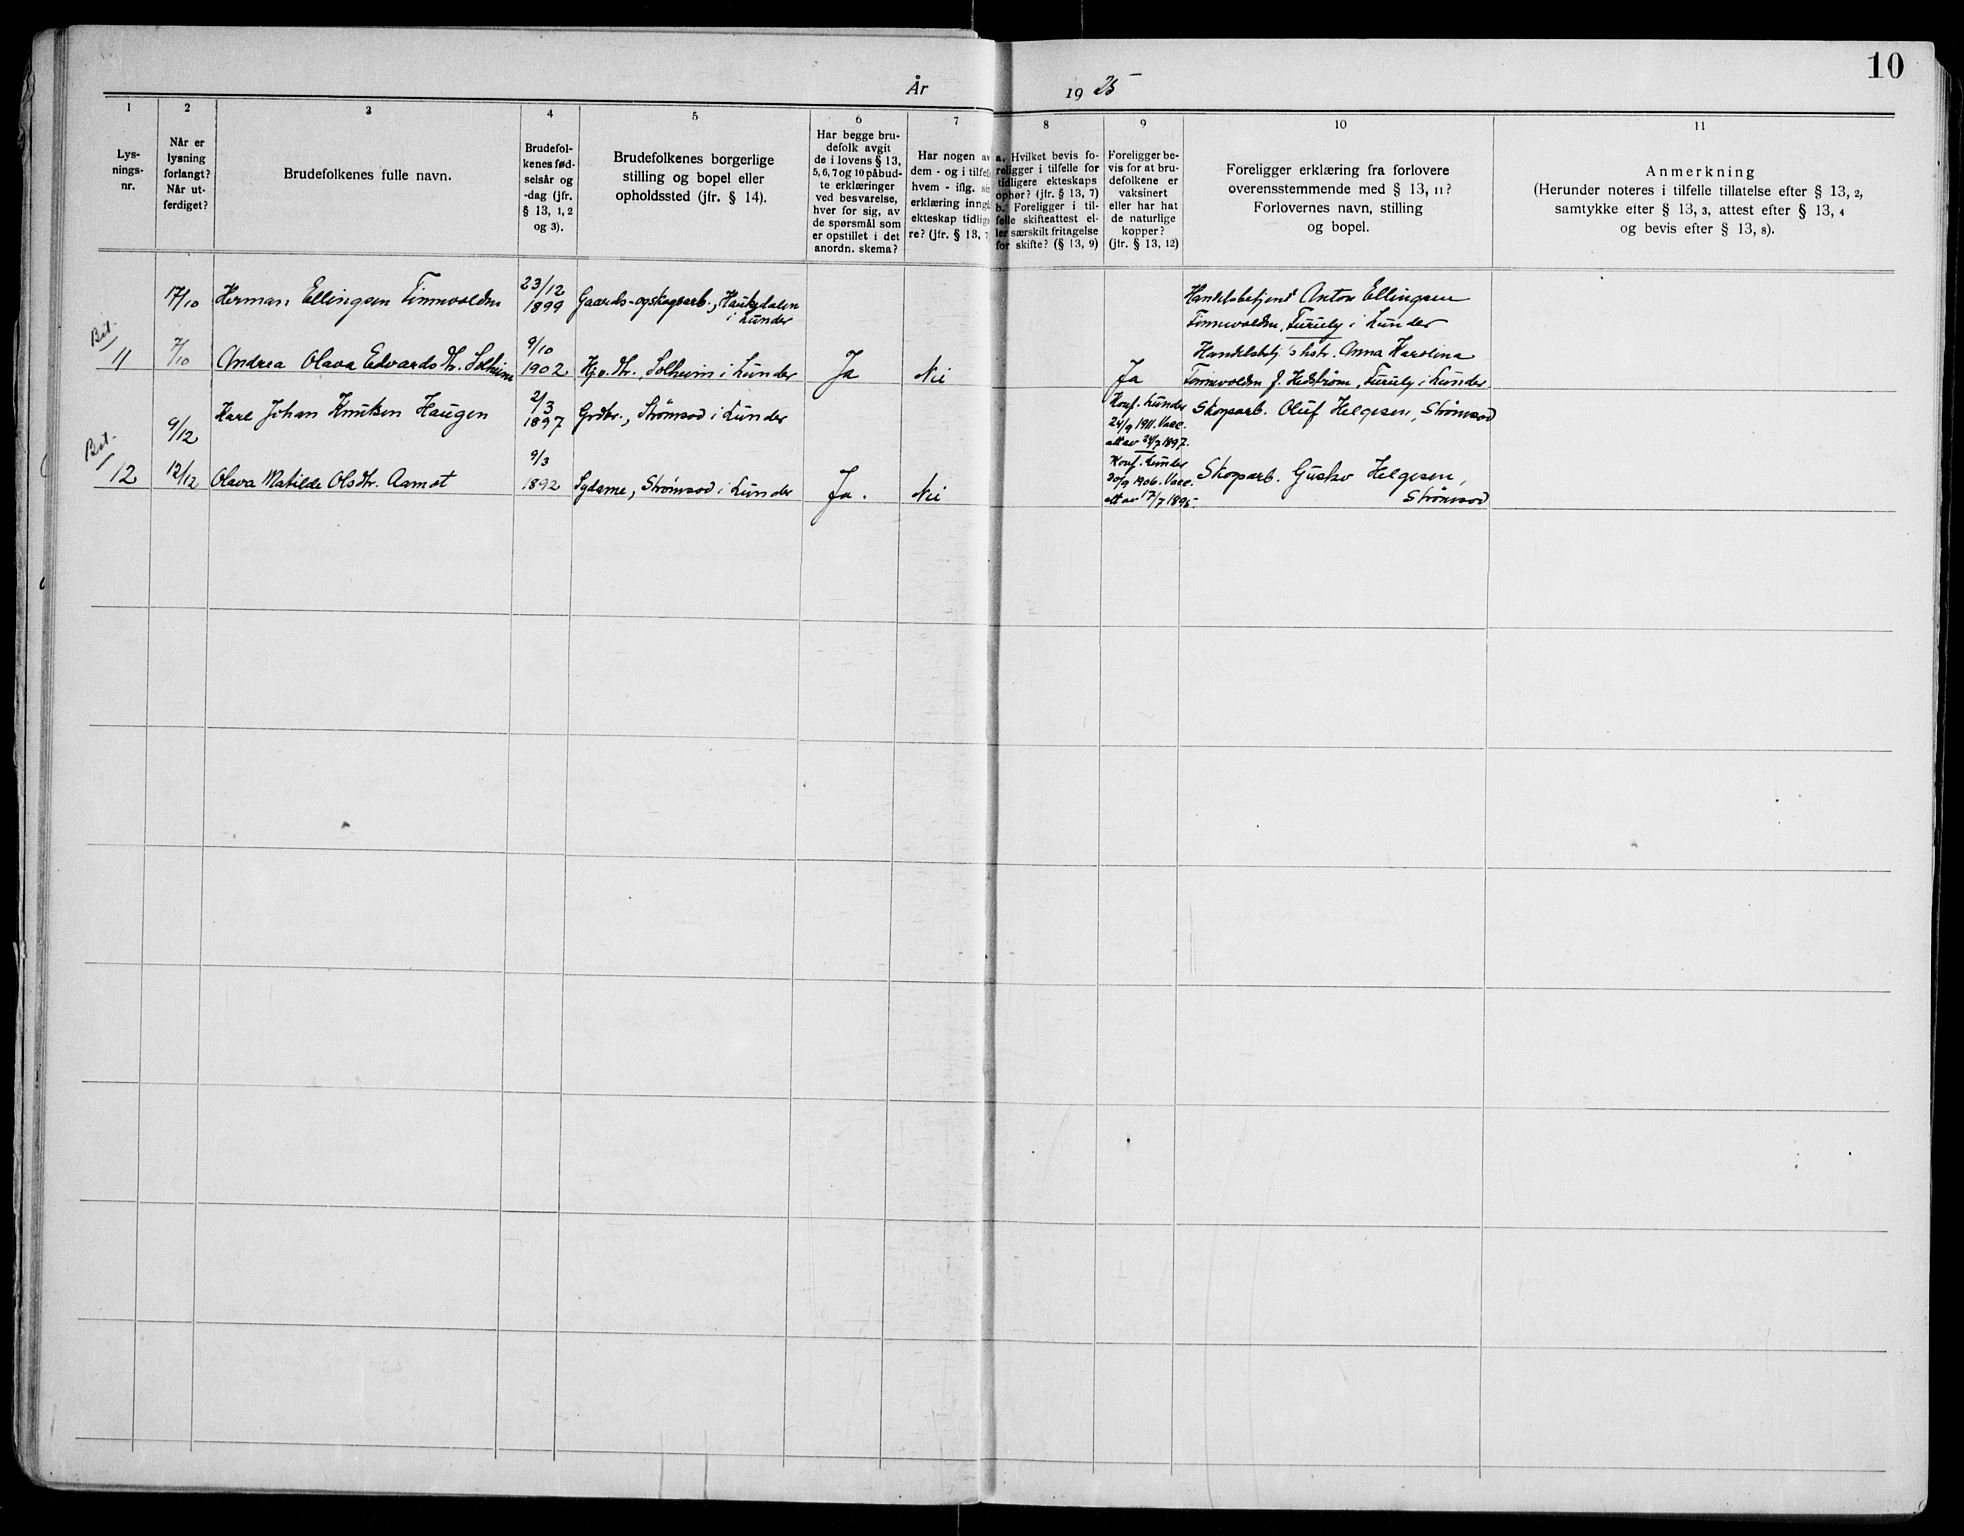 10
År 1925
1
Lys-
nings-
nr.
2
Når er
lysning
forlangt?
Når ut-
ferdiget?
3
Brudefolkenes fulle navn.
4
Brudefol-
kenes fød-
selsår og
-dag (jfr.
§ 13, 1, 2
og 3).
5
Brudefolkenes borgerlige
stilling og bopel eller
opholdssted (jfr. § 14).
6
Har begge bru-
defolk avgit
de i lovens § 13,
5, 6, 7 og 10 påbud-
te erklæringer
ved besvarelse,
hver for sig, av
de spørsmål som
er opstillet i det
anordn. skema?
7
Har nogen av
dem - og i tilfelle
hvem - iflg. sin
erklæring inngå
ekteskap tidlige
re? (jfr. § 13, 7
8
a. Hvilket bevis fo-
religger i tilfelle for
tidligere ekteskaps
ophør? (jfr. § 13, 7)
b. Foreligger i til-
felle skifteattest el-
ler særskilt fritagelse
for skifte? (§ 13, 9)
9
Foreligger be-
vis for at bru-
defolkene er
vaksinert
eller har hat
de naturlige
kopper?
(jfr. § 13, 12)
10
Foreligger erklæring fra forlovere
overensstemmende med § 13, 11?
Forlovernes navn, stilling
og bopel.
11
Anmerkning
(Herunder noteres i tilfelle tillatelse efter § 13, 2,
samtykke efter § 13, 3, attest efter § 13, 4
og bevis efter § 13, 8).
Bet.
11
17/10
7/10
Herman Ellingsen Finnvolden
23/12
1899
Gaards- og skogsarb., Hauksdalen
i Lunder
Andrea Olava Edvardsdtr. Solheim
9/10
1902
Hj.v. dtr., Solheim i Lunder
Ja
Nei
Ja
Handelsbetjent Anton Ellingsen
Finnvolden, Furuly i Lunder
Handelsbetj.'s hstr. Anna Karolina
Finnvolden f. Hedstrøm, Furuly i Lunder
Bet.
12
9/12
12/12
Karl Johan Knutsen Haugen
2/3
1897
Grdbr., Strømsod i Lunder
Olava Matilde Olsdtr. Aamot
9/3
1892
Sydame, Strømsod i Lunder
Ja.
Nei
Konf. Lunder
24/9 1911. Vacc.
att av 24/7 1897.
Konf. Lunder
30/9 1906. Vacc.
att av 17/7 1895.
Skogsarb. Oluf Helgesen, Strømsod
Skogsarb. Gustav Helgesen,
Strømsod